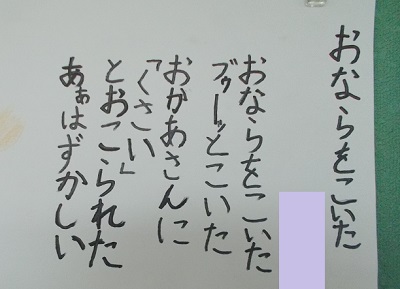 おならをこいた
おならをこいた
ブゥーッとこいた
おかあさんに
「くさい」
とおこられた
あぁはずかしい